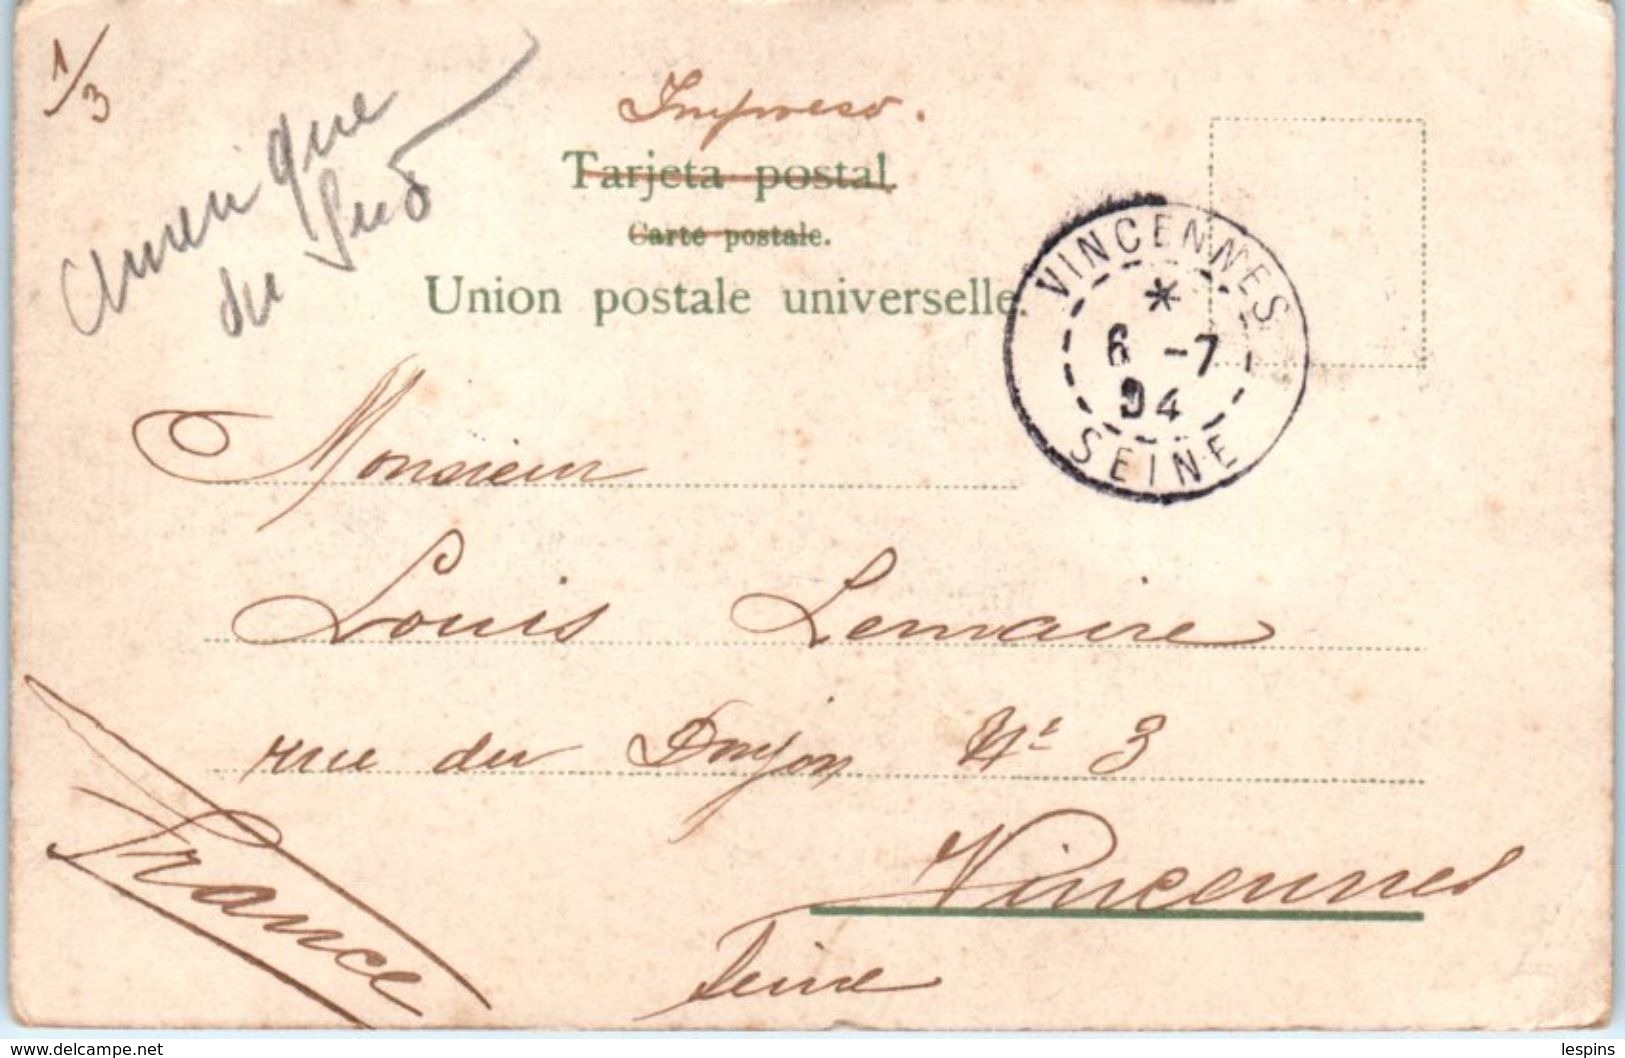 1/3
amerique
du Sud
Impreso.
Tarjeta postal.
Carte postale.
Union postale universelle.
VINCENNES
*
6 -7
04
SEINE
Monsieur
Louis Lemaire
rue du Donjon Nº 3
Vincennes
Seine
France
delcampe.net
lespins